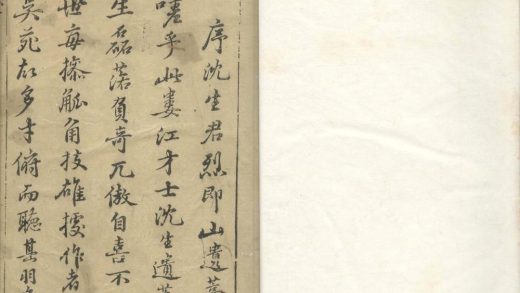 序沈生君烈即山遺藁
嗟乎此婁江才士沈生遺
生磊落負奇兀傲自喜不
世每操觚角技雄據作者
吳苑故多才俯而聽其羽